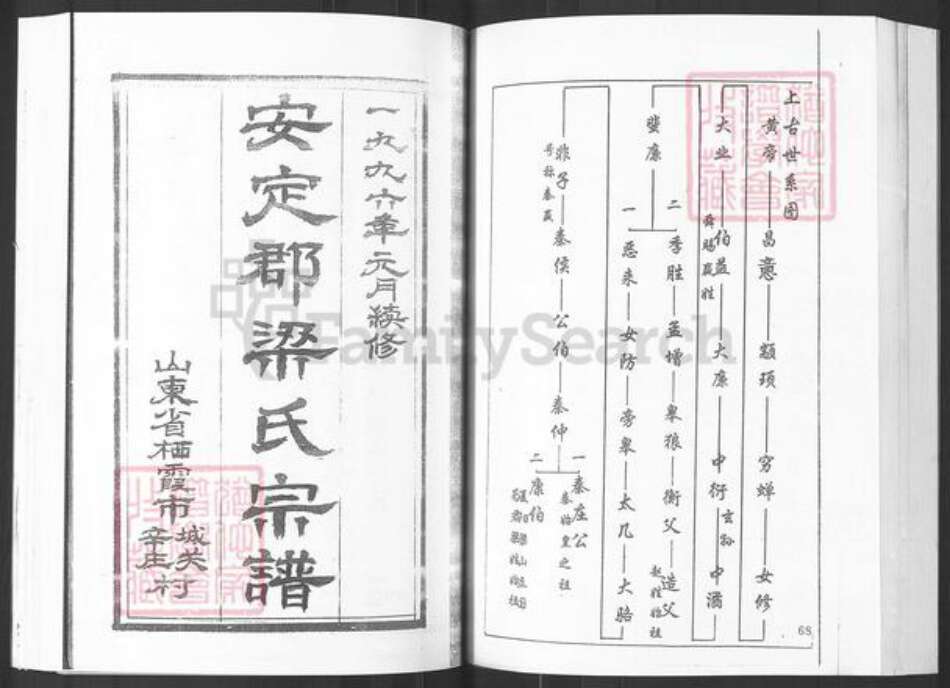 一九九六年元月續修
安定郡梁氏宗譜
山東省栖霞市
城关
辛庄
村
FamilySearch
上古世系图
黄帝 昌意 颛顼 穷蝉 女修
大业 伯益 大廉 中衍 中潏
舜赐嬴姓
玄孙
蜚廉
二 季胜 孟增 皋狼 衡父 造父
赵姓始祖
一 恶来 女防 旁皋 太几 大骆
非子 秦侯 公伯 秦仲
号称秦嬴
一 秦庄公
秦始皇之祖
二 康伯
68